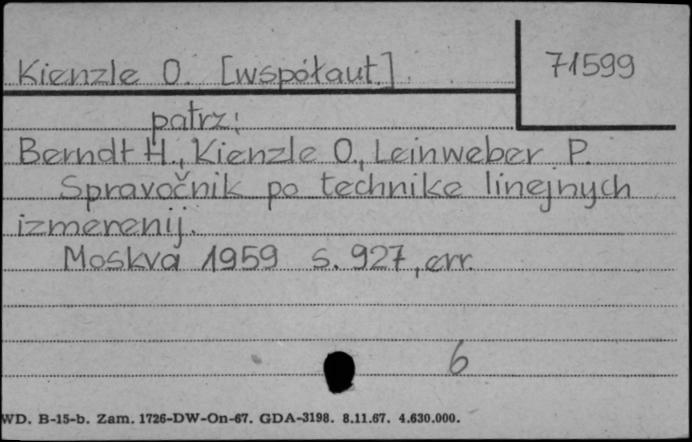 Kienzle O. [współaut.]
71599
patrz:
Berndt H., Kienzle O., Leinweber P.
Spravočnik po technike linejnych
izmerenij.
Moskva 1959 s. 927, err.
6
WD. B-15-b. Zam. 1726-DW-On-67. GDA-3198. 8.11.67. 4.630.000.